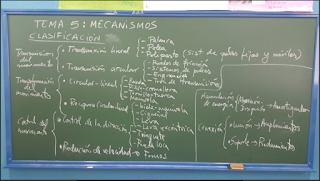 TEMA 5: MECANISMOS
CLASIFICACIÓN
Transmisión del movimiento
• Transmisión lineal
- Palanca
- Polea
- Polipasto (Sist de poleas fijas y móviles)
• Transmisión circular
- Ruedas de fricción
- Sistemas de poleas
- Engranajes
- Tren de transmisión
Transformación del movimiento
• Circular-lineal
- Piñón-cremallera
• Recíproco
- biela-manivela
- Cigüeñal
- Leva
- Excéntrica
Control del movimiento
• Control de la dirección
- Trinquete
- Rueda libre
• Reducción de velocidad → Frenos
Acumulación de energía
- Amortiguadores
Conexión
- Unión → Acoplamientos
- Soporte → Rodamientos